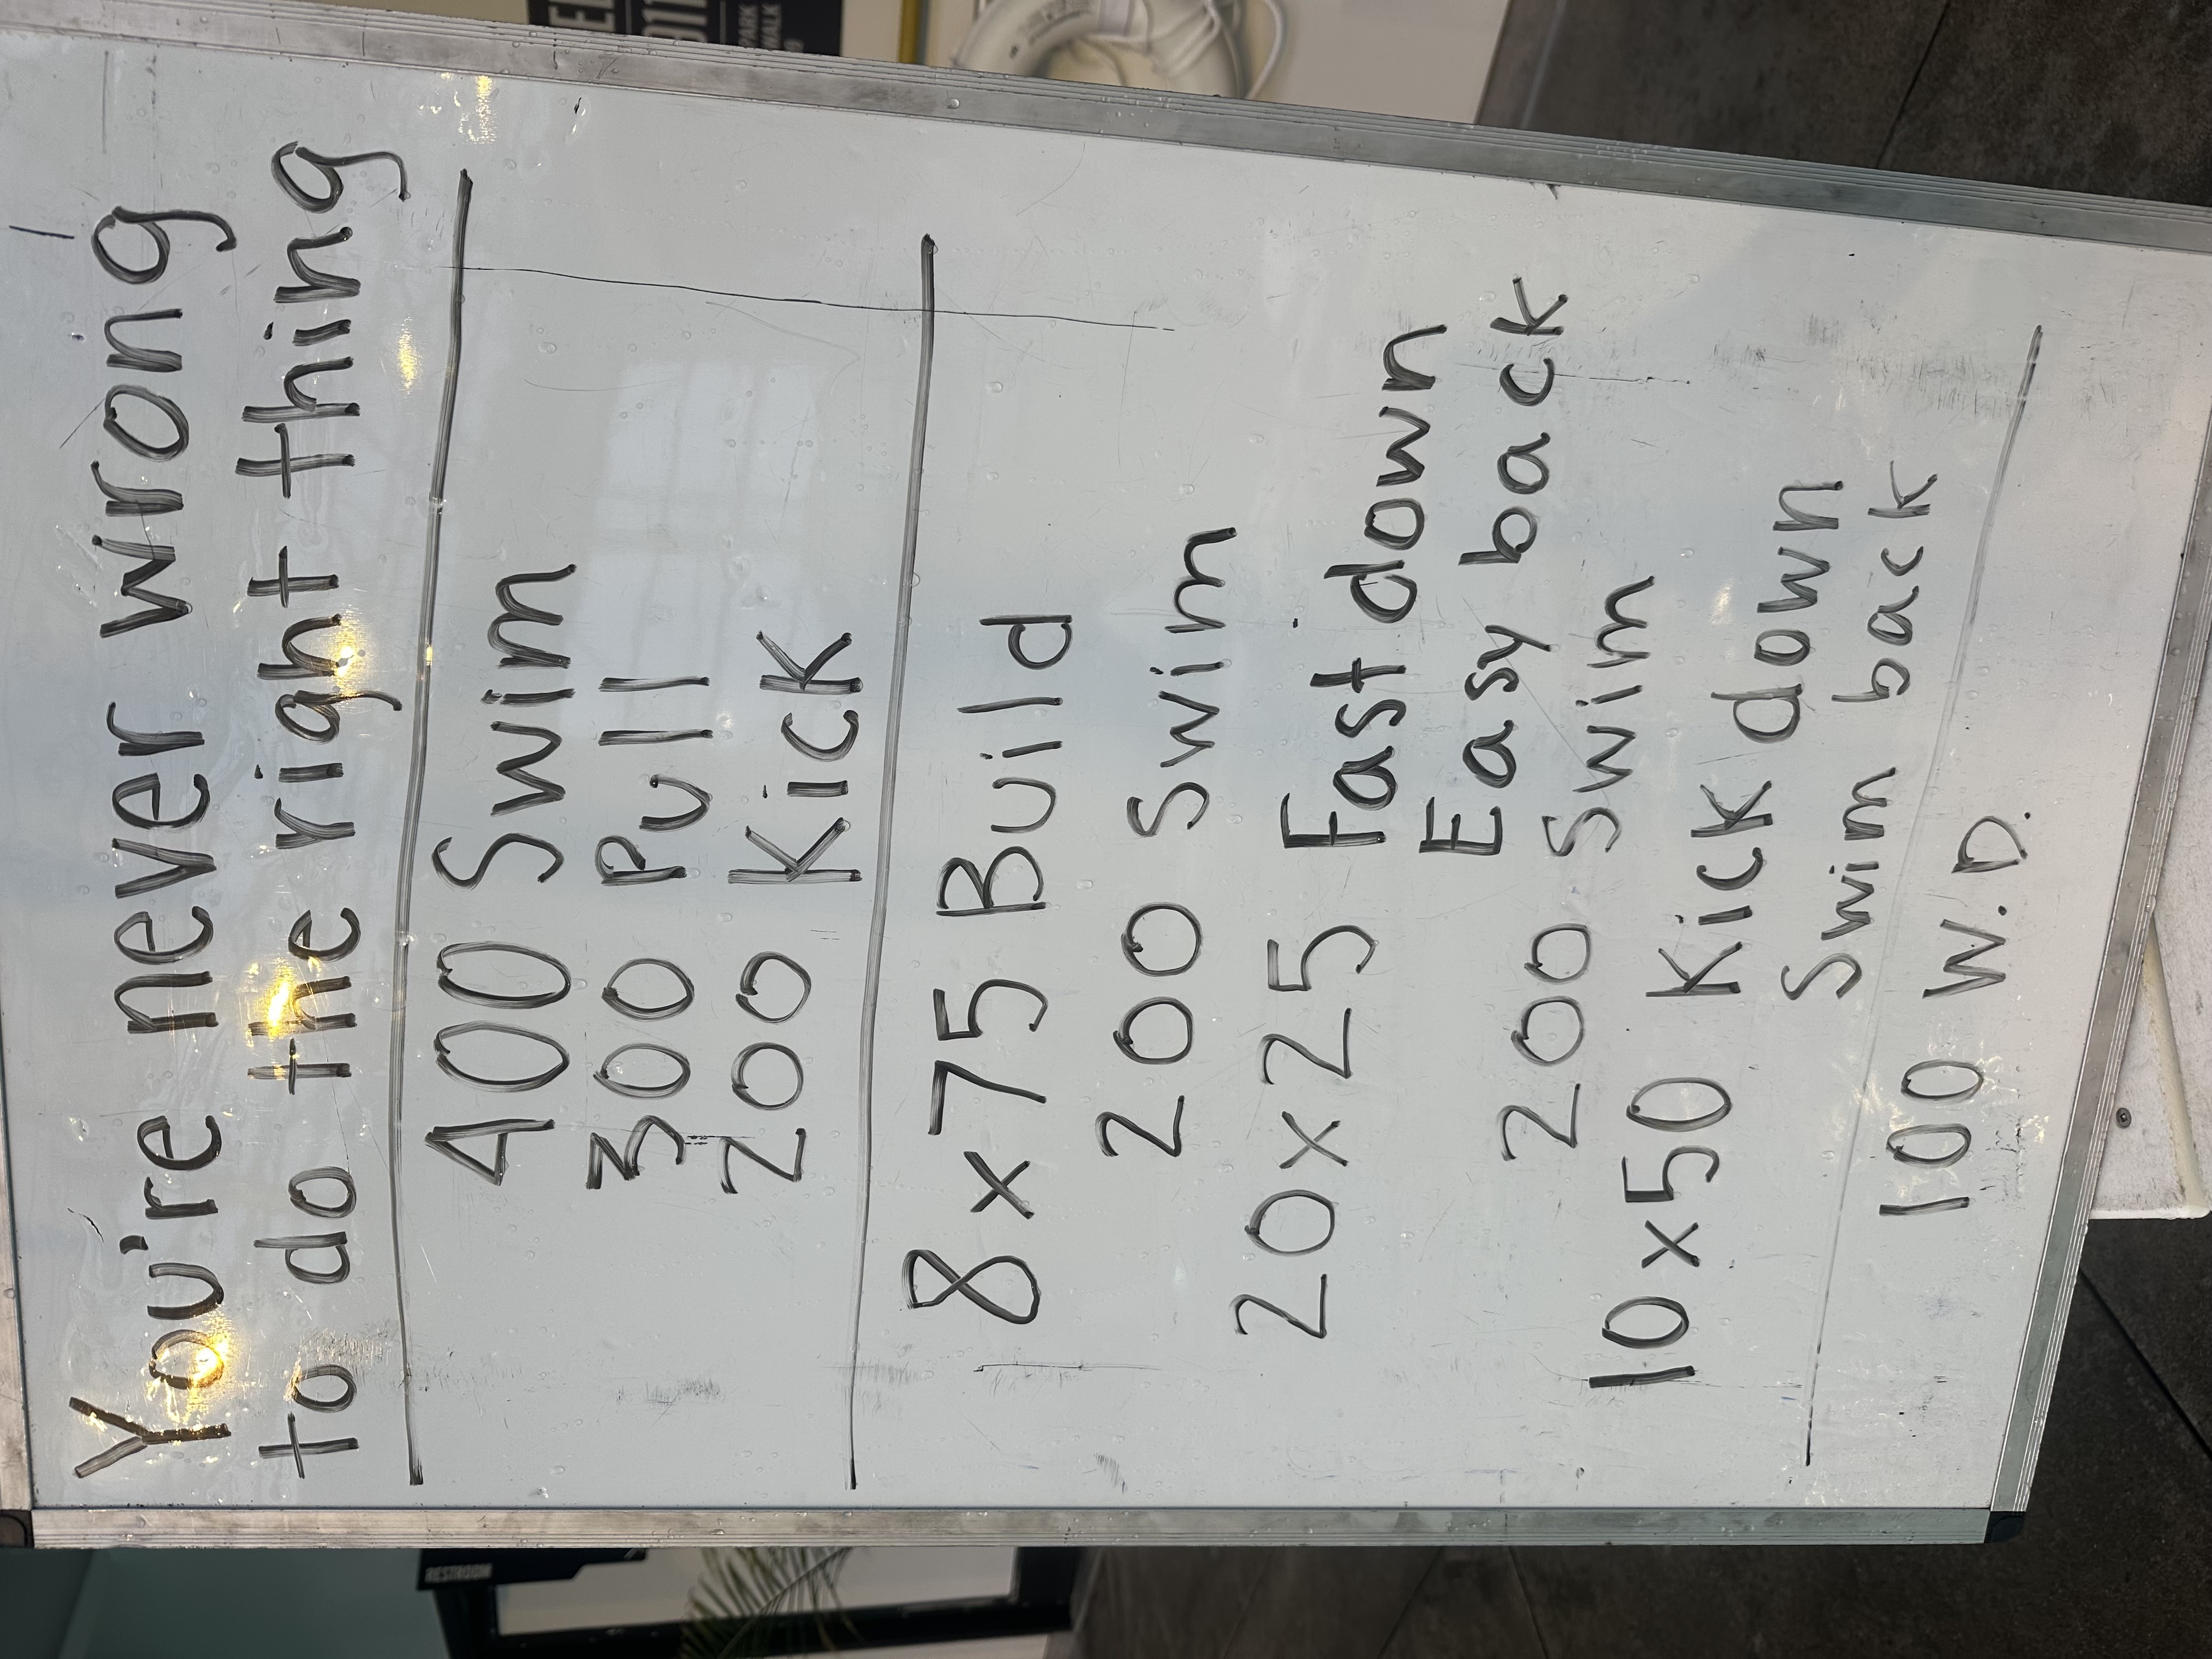 You're never wrong
to do the right thing
400 Swim
300 Pull
200 Kick
8x75 Build
200 Swim
20x25 Fast down
Easy back
200 Swim
10x50 Kick down
Swim back
100 W.D.
RESTROOM